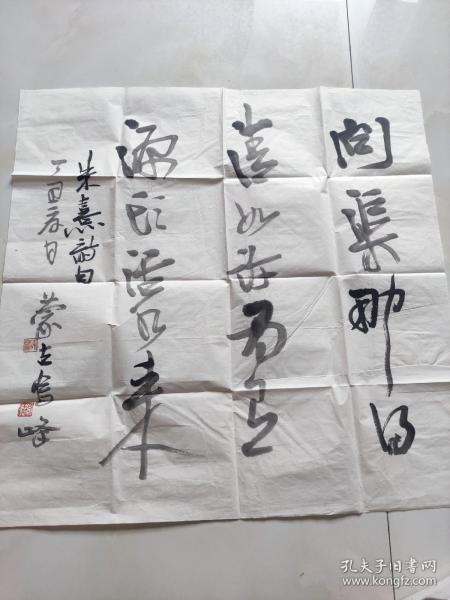 问渠那得
清如许为有
源头活水来
朱熹诗句
丁酉春日
蒙古 峰
孔夫子旧书网
www.kongfz.com